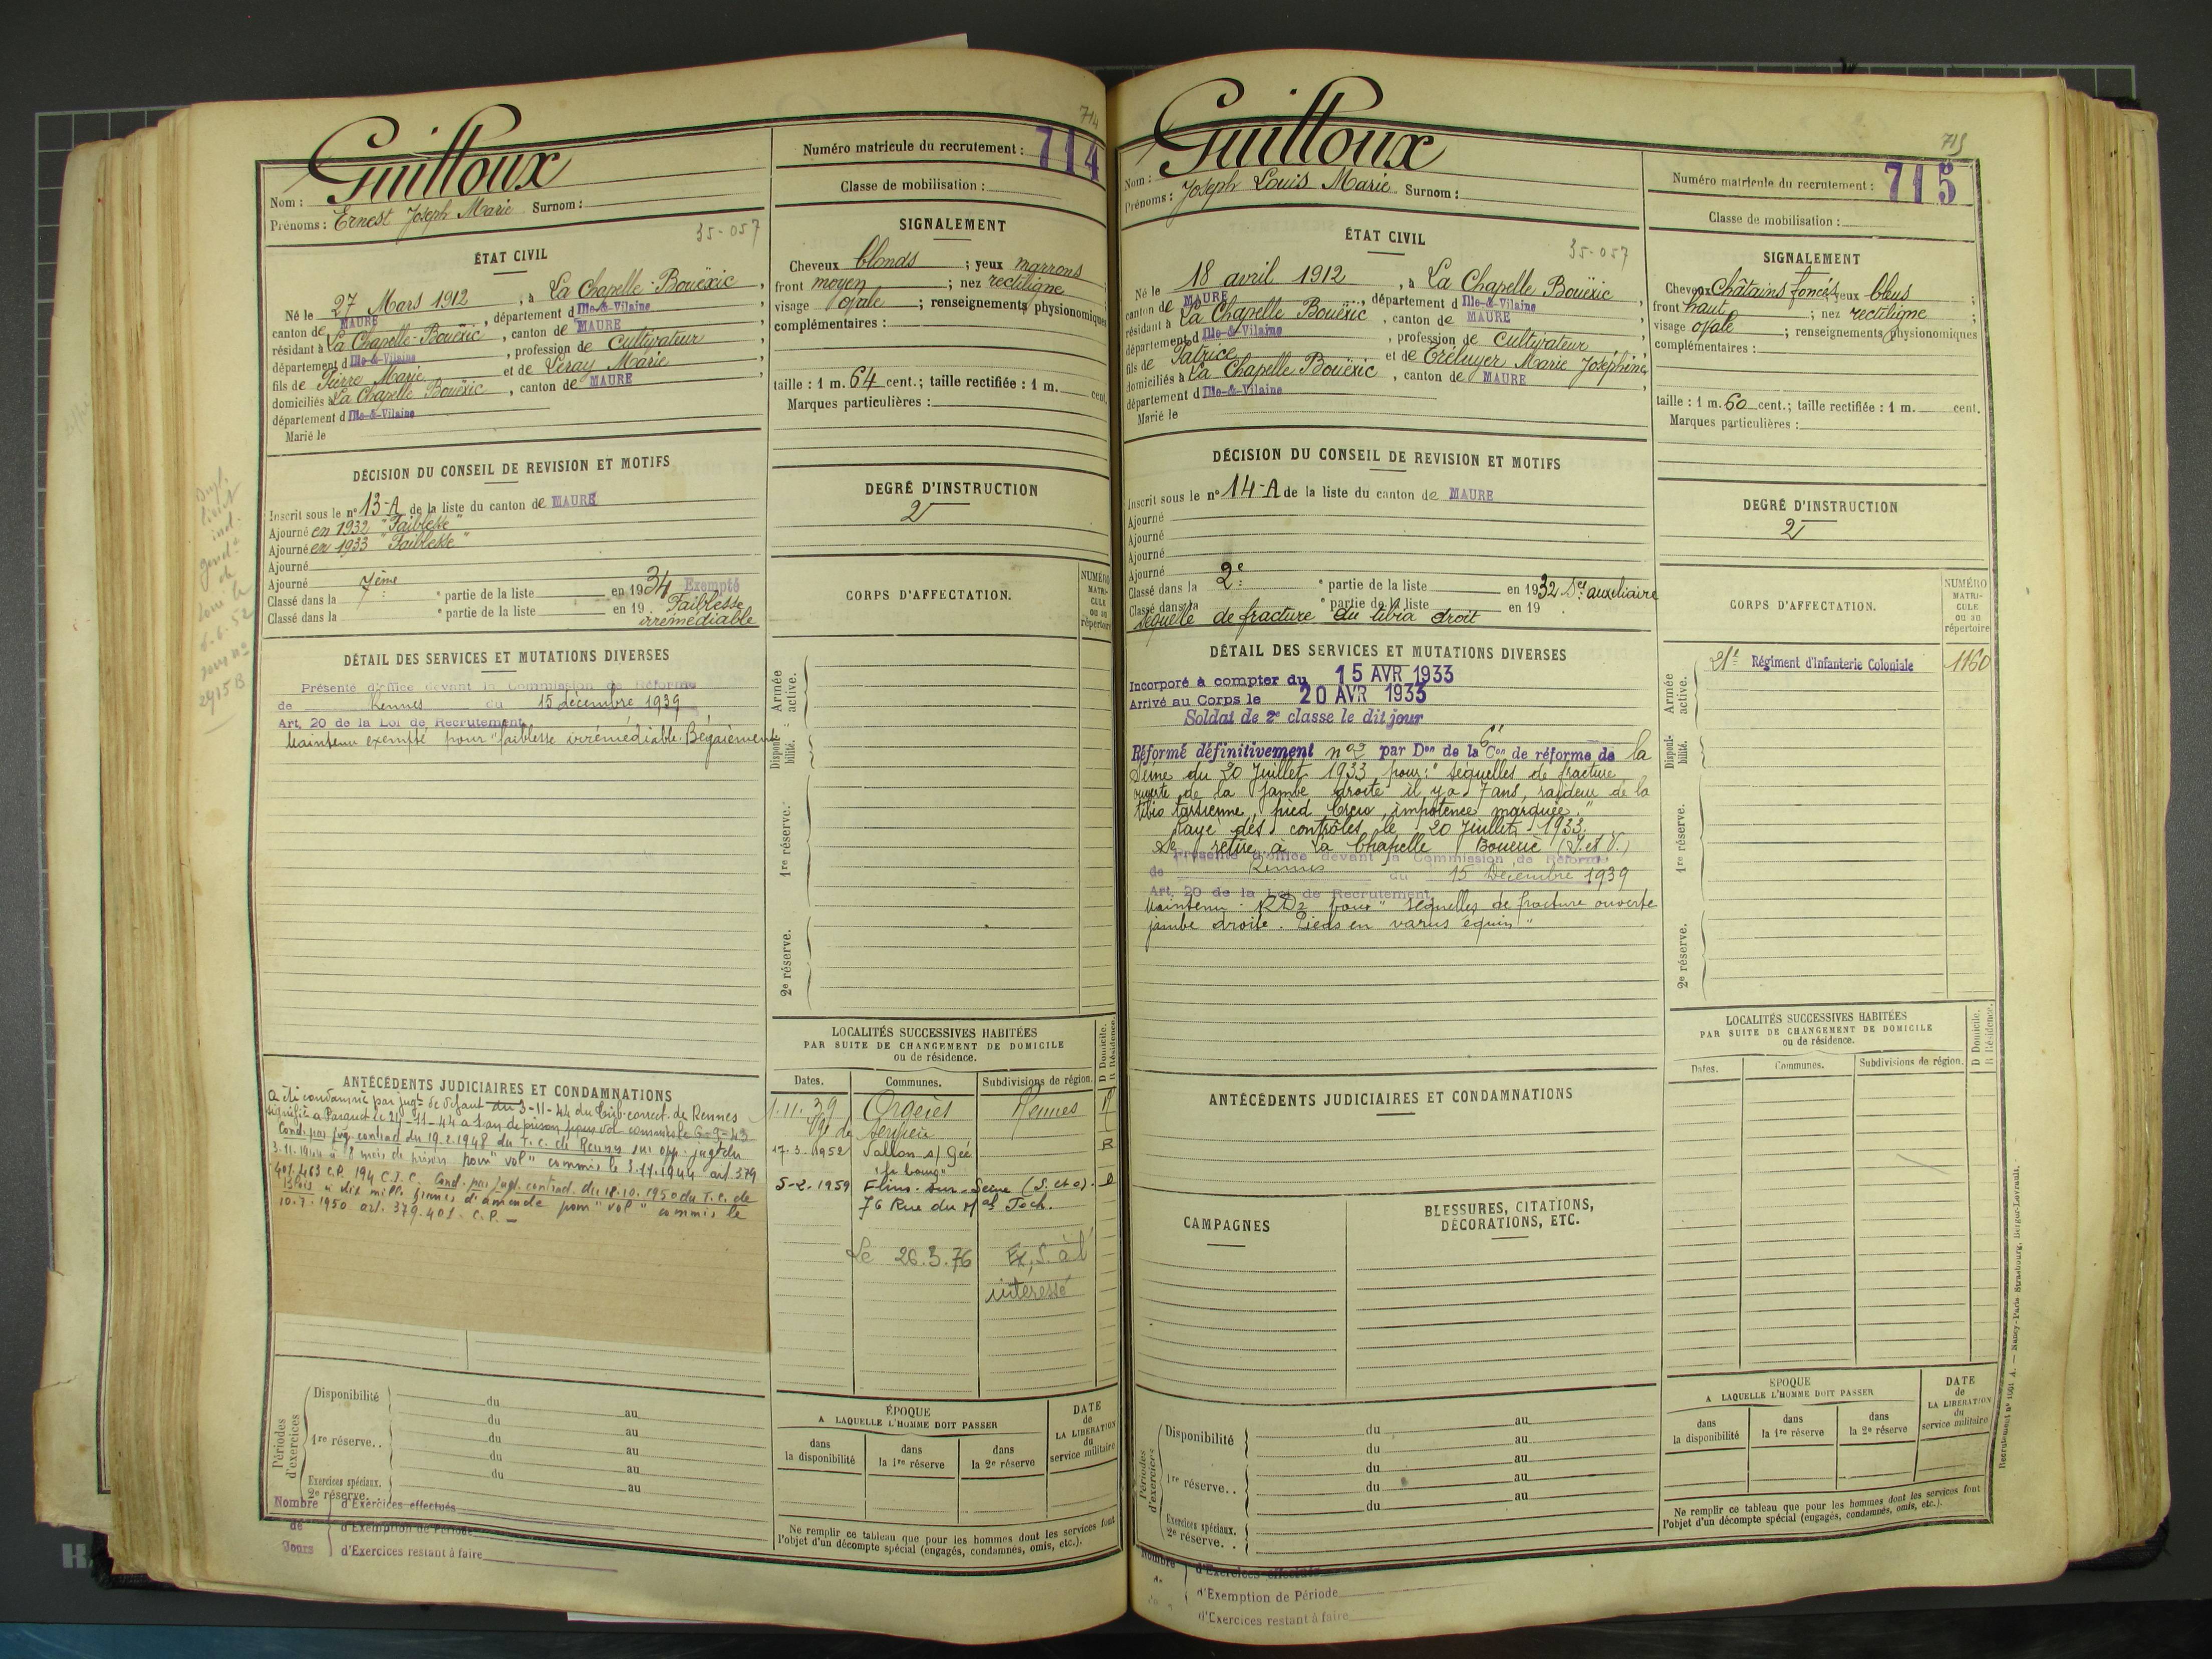 714
Guilloux
Nom :
Prénoms : Ernest Joseph Marie Surnom :
Numéro matricule du recrutement : 714
Classe de mobilisation :
35-057
ÉTAT CIVIL
Né le 27 Mars 1912, à La Chapelle-Bouëxic,
canton de MAURE, département d Ille-&-Vilaine
résidant à La Chapelle-Bouëxic, canton de MAURE
département d Ille-&-Vilaine, profession de Cultivateur
fils de Pierre Marie et de Leray Marie
domiciliés à La Chapelle Bouëxic, canton de MAURE
département d Ille-&-Vilaine
Marié le
SIGNALEMENT
Cheveux blonds ; yeux marrons
front moyen ; nez rectiligne
visage ovale ; renseignements physionomiques
complémentaires :
taille : 1 m. 64 cent. ; taille rectifiée : 1 m. cent.
Marques particulières :
DÉCISION DU CONSEIL DE REVISION ET MOTIFS
Inscrit sous le n° 13-A de la liste du canton de MAURE
Ajourné en 1932 "Faiblesse"
Ajourné en 1933 "Faiblesse"
Ajourné
Ajourné
Classé dans la 7ème partie de la liste en 1934 Exempté
Classé dans la partie de la liste en 19 . Faiblesse
irrémédiable
DEGRÉ D'INSTRUCTION
2
CORPS D'AFFECTATION.
NUMÉRO MATRI-CULE ou au répertoire
DÉTAIL DES SERVICES ET MUTATIONS DIVERSES
Présenté d'office devant la Commission de Réforme
de Rennes du 15 décembre 1939
Art. 20 de la Loi de Recrutement
Maintenu exempté pour "faiblesse irrémédiable. Bégaiement"
Armée active.
Disponi-bilité.
1re réserve.
2e réserve.
ANTÉCÉDENTS JUDICIAIRES ET CONDAMNATIONS
A été condamné par jugt de défaut du 3-11-44 du Trib. correct. de Rennes
signifié à Parquet le 24-11-44 à 1 an de prison pour vol commis le 6-9-43
Cond. par jug. contrad. du 19.2.1948 du T. C. de Rennes sur opp. jugt du
3.11.1944 à 8 mois de prison pour "vol" commis le 3.11.1944 art. 379
401. 463 C.P. 194 C.I.C. Cond. par jugt. contrad. du 18.10.1950 du T. C. de
Blois à dix mille francs d'amende pour "vol" commis le
10.7.1950 art. 379.401. C.P. —
LOCALITÉS SUCCESSIVES HABITÉES
PAR SUITE DE CHANGEMENT DE DOMICILE
ou de résidence.
D Domicile. R Résidence.
Dates. Communes. Subdivisions de région.
1.11.39 Orgères Rennes R
17.3.1952 Vallon s/ Gée R
"le bourg"
5-2-1959 Flins-sur-Seine (S. et O.). D
76 Rue du Mal Foch.
Le 26.3.76 Ex, S. à l'
intéressé
Périodes d'exercices
Disponibilité du au
du au
1re réserve.. du au
du au
du au
Exercices spéciaux.
2e réserve..
Nombre de Jours
d'Exercices effectués
d'Exemption de Période
d'Exercices restant à faire
ÉPOQUE
A LAQUELLE L'HOMME DOIT PASSER
DATE de LA LIBÉRATION du service militaire
dans la disponibilité
dans la 1re réserve
dans la 2e réserve
Ne remplir ce tableau que pour les hommes dont les services font
l'objet d'un décompte spécial (engagés, condamnés, omis, etc.).
715
Guilloux
Nom :
Prénoms : Joseph Louis Marie Surnom :
Numéro matricule du recrutement : 715
Classe de mobilisation :
35-057
ÉTAT CIVIL
Né le 18 avril 1912, à La Chapelle Bouëxic
canton de MAURE, département d Ille-&-Vilaine
résidant à La Chapelle Bouëxic, canton de MAURE
département d Ille-&-Vilaine, profession de Cultivateur
fils de Patrice et de Tréluyer Marie Joséphine
domiciliés à La Chapelle Bouëxic, canton de MAURE
département d Ille-&-Vilaine
Marié le
SIGNALEMENT
Cheveux châtains foncés yeux bleus
front haut ; nez rectiligne
visage ovale ; renseignements physionomiques
complémentaires :
taille : 1 m. 60 cent. ; taille rectifiée : 1 m. cent.
Marques particulières :
DÉCISION DU CONSEIL DE REVISION ET MOTIFS
Inscrit sous le n° 14-A de la liste du canton de MAURE
Ajourné
Ajourné
Ajourné
Ajourné
Classé dans la 2e partie de la liste en 1932 Sce auxiliaire
Classé dans la partie de la liste en 19
Séquelle de fracture du tibia droit
DEGRÉ D'INSTRUCTION
2
CORPS D'AFFECTATION.
NUMÉRO MATRI-CULE ou au répertoire
21e Régiment d'Infanterie Coloniale 1160
DÉTAIL DES SERVICES ET MUTATIONS DIVERSES
Incorporé à compter du 15 AVR 1933
Arrivé au Corps le 20 AVR 1933
Soldat de 2e classe le dit jour
Réformé définitivement n°2 par Don de la 6e Con de réforme de la
Seine du 20 Juillet 1933 pour : "séquelles de fracture
ouverte de la jambe droite il y a 7 ans, raideur de la
tibio tarsienne, pied creux, impotence marquée."
Rayé des contrôles le 20 Juillet 1933.
Se retire à La Chapelle Bouëxic (I. et V.)
Présenté d'office devant la Commission de Réforme
de Rennes du 15 Décembre 1939
Art. 20 de la Loi de Recrutement
Maintenu RD2 pour "séquelles de fracture ouverte
jambe droite. Pieds en varus équin"
Armée active.
Disponi-bilité.
1re réserve.
2e réserve.
ANTÉCÉDENTS JUDICIAIRES ET CONDAMNATIONS
LOCALITÉS SUCCESSIVES HABITÉES
PAR SUITE DE CHANGEMENT DE DOMICILE
ou de résidence.
D Domicile. R Résidence.
Dates. Communes. Subdivisions de région.
CAMPAGNES
BLESSURES, CITATIONS,
DÉCORATIONS, ETC.
Périodes d'exercices
Disponibilité du au
du au
1re réserve.. du au
du au
du au
Exercices spéciaux.
2e réserve..
Nombre
d'Exercices effectués
d'Exemption de Période
d'Exercices restant à faire
ÉPOQUE
A LAQUELLE L'HOMME DOIT PASSER
DATE de LA LIBÉRATION du service militaire
dans la disponibilité
dans la 1re réserve
dans la 2e réserve
Ne remplir ce tableau que pour les hommes dont les services font
l'objet d'un décompte spécial (engagés, condamnés, omis, etc.).
Recrutement n° 1091 A. — Nancy-Paris-Strasbourg, Berger-Levrault.